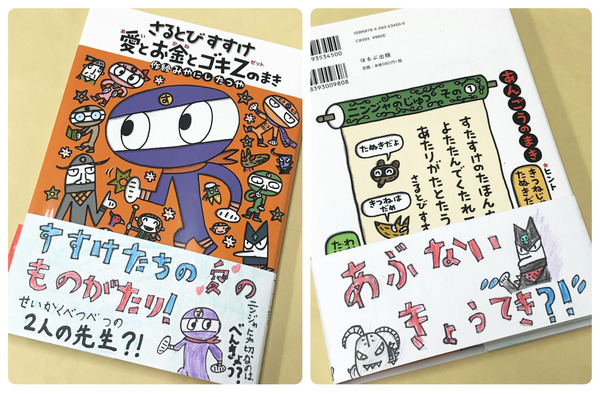 さるとび すすけ
愛とお金とゴキZのまき
あい
かね
ゼット
作絵 みやにし たつや
すすけたちの愛の
ものがたり!
せいかくべつべつの
2人の先生?!
ニンジャに大切なのは、
べんきょう?!
ISBN978-4-593-53450-0
C8393 ¥980E
ほるぷ出版
定価:本体980円+税
93534500
8393009808
ニンジャのじゅつ その1
あんごうのまき
すたすけのたほん
よたたんでくたれ
あたりがたとたう
さるとびす
たぬきだよ
きつねは
だめ
ヒント
きつねじ
たぬきだ
たわ
あぶない
きょうてき?!